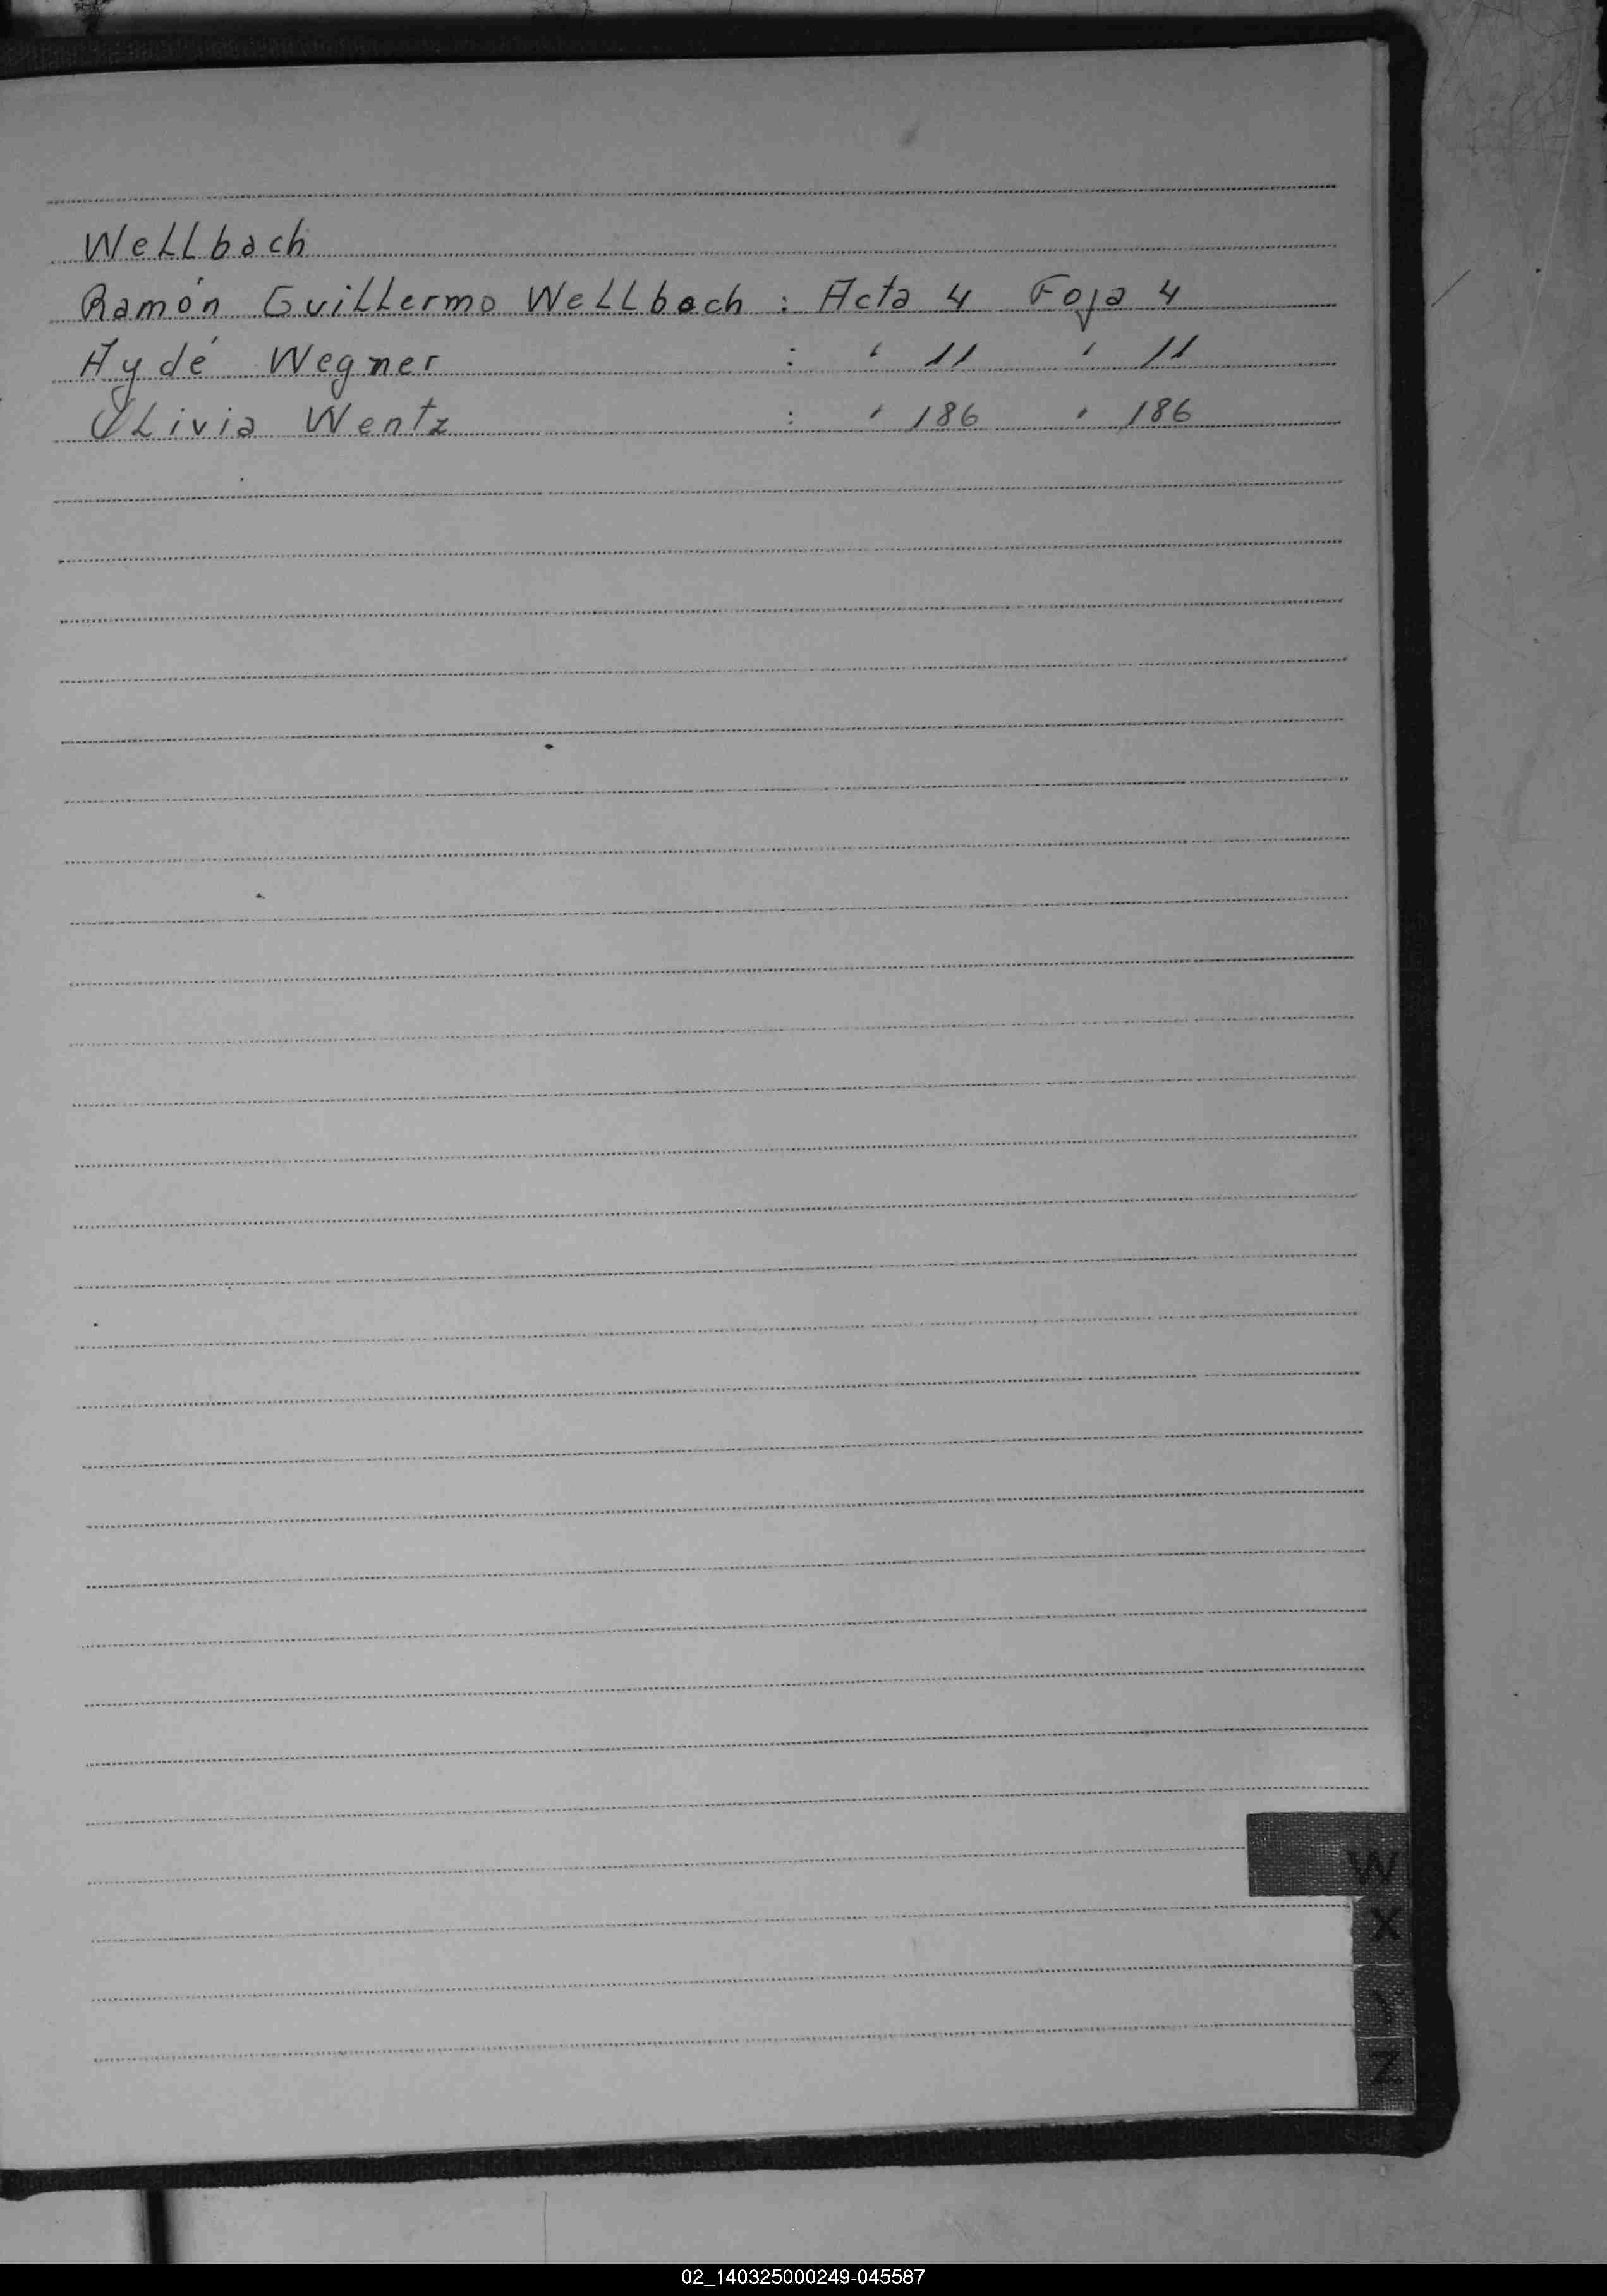 Wellbach
Ramón Guillermo Wellbach : Acta 4 Foja 4
Hydé Wegner : ' 11 ' 11
Olivia Wentz : ' 186 ' 186
W
X
Z
02_140325000249-045587